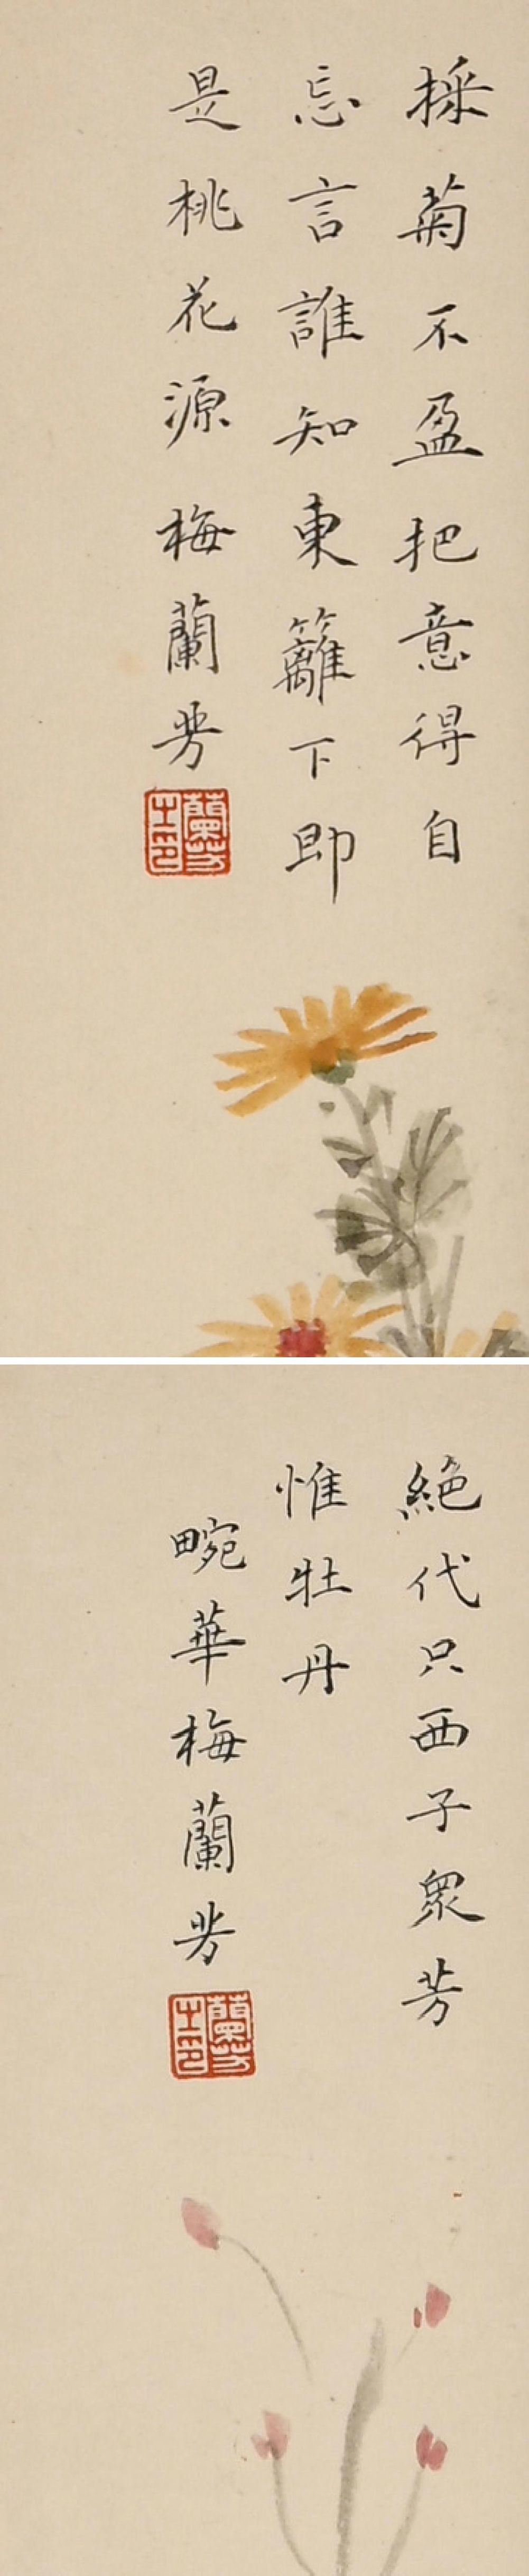 採菊不盈把意得自
忘言誰知東籬下即
是桃花源 梅蘭芳
蘭芳之印
絕代只西子眾芳
惟牡丹
畹華梅蘭芳
蘭芳之印